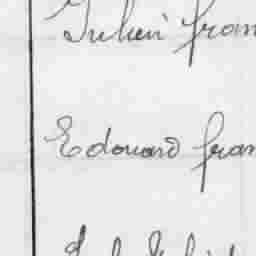 Julien fran
Edouard fran